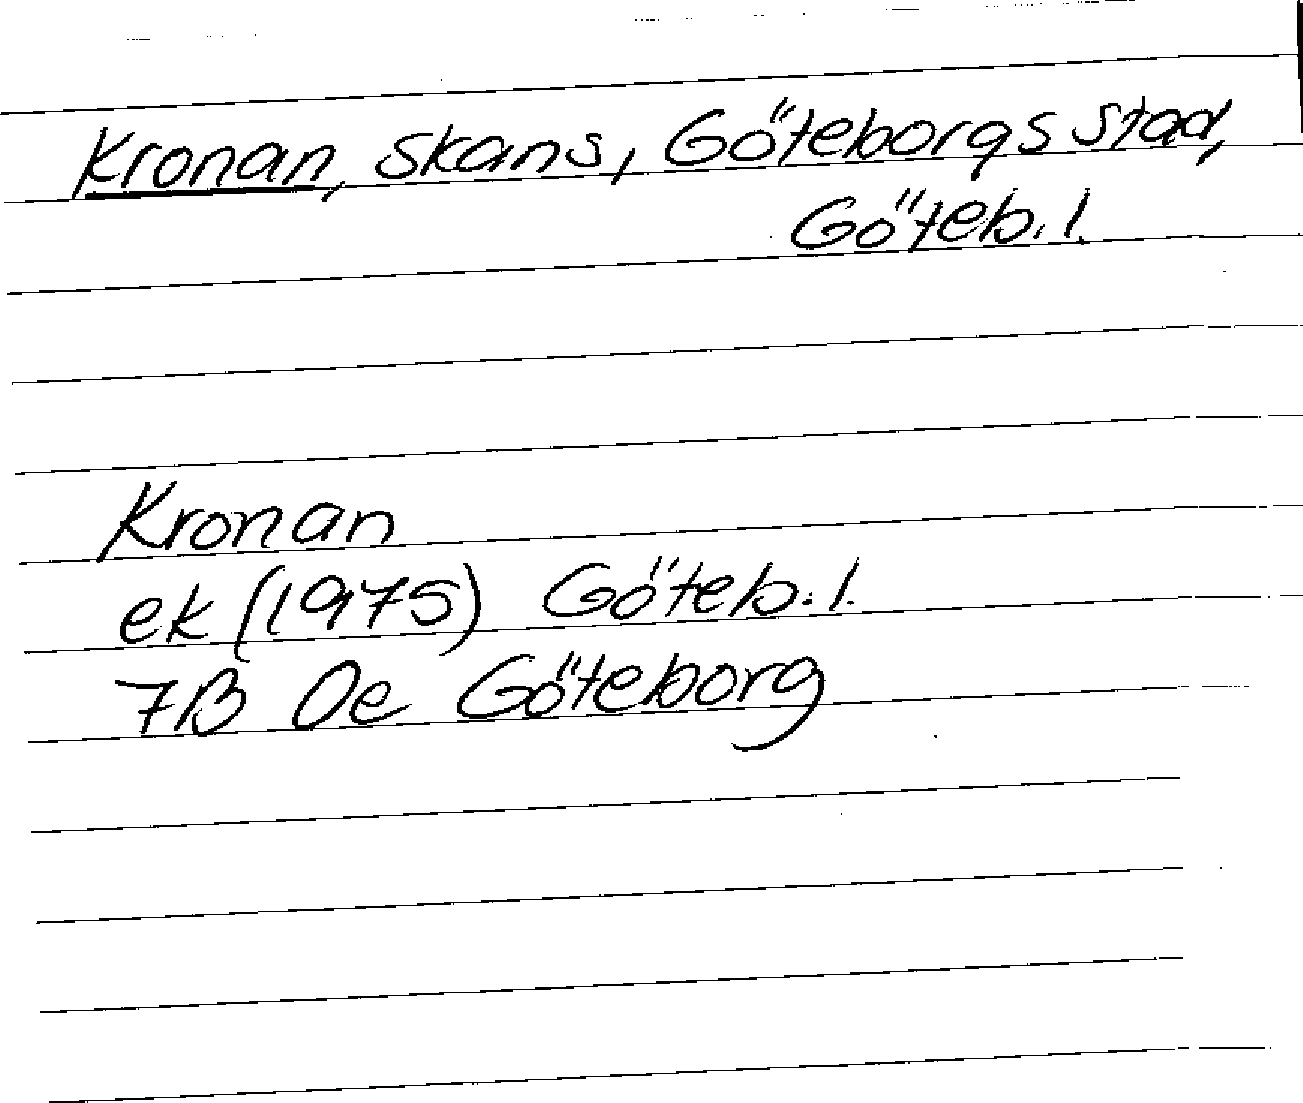 Kronan, skans, Göteborgs stad,
Göteb. l.
Kronan
ek (1975) Göteb. l.
7B 0e Göteborg